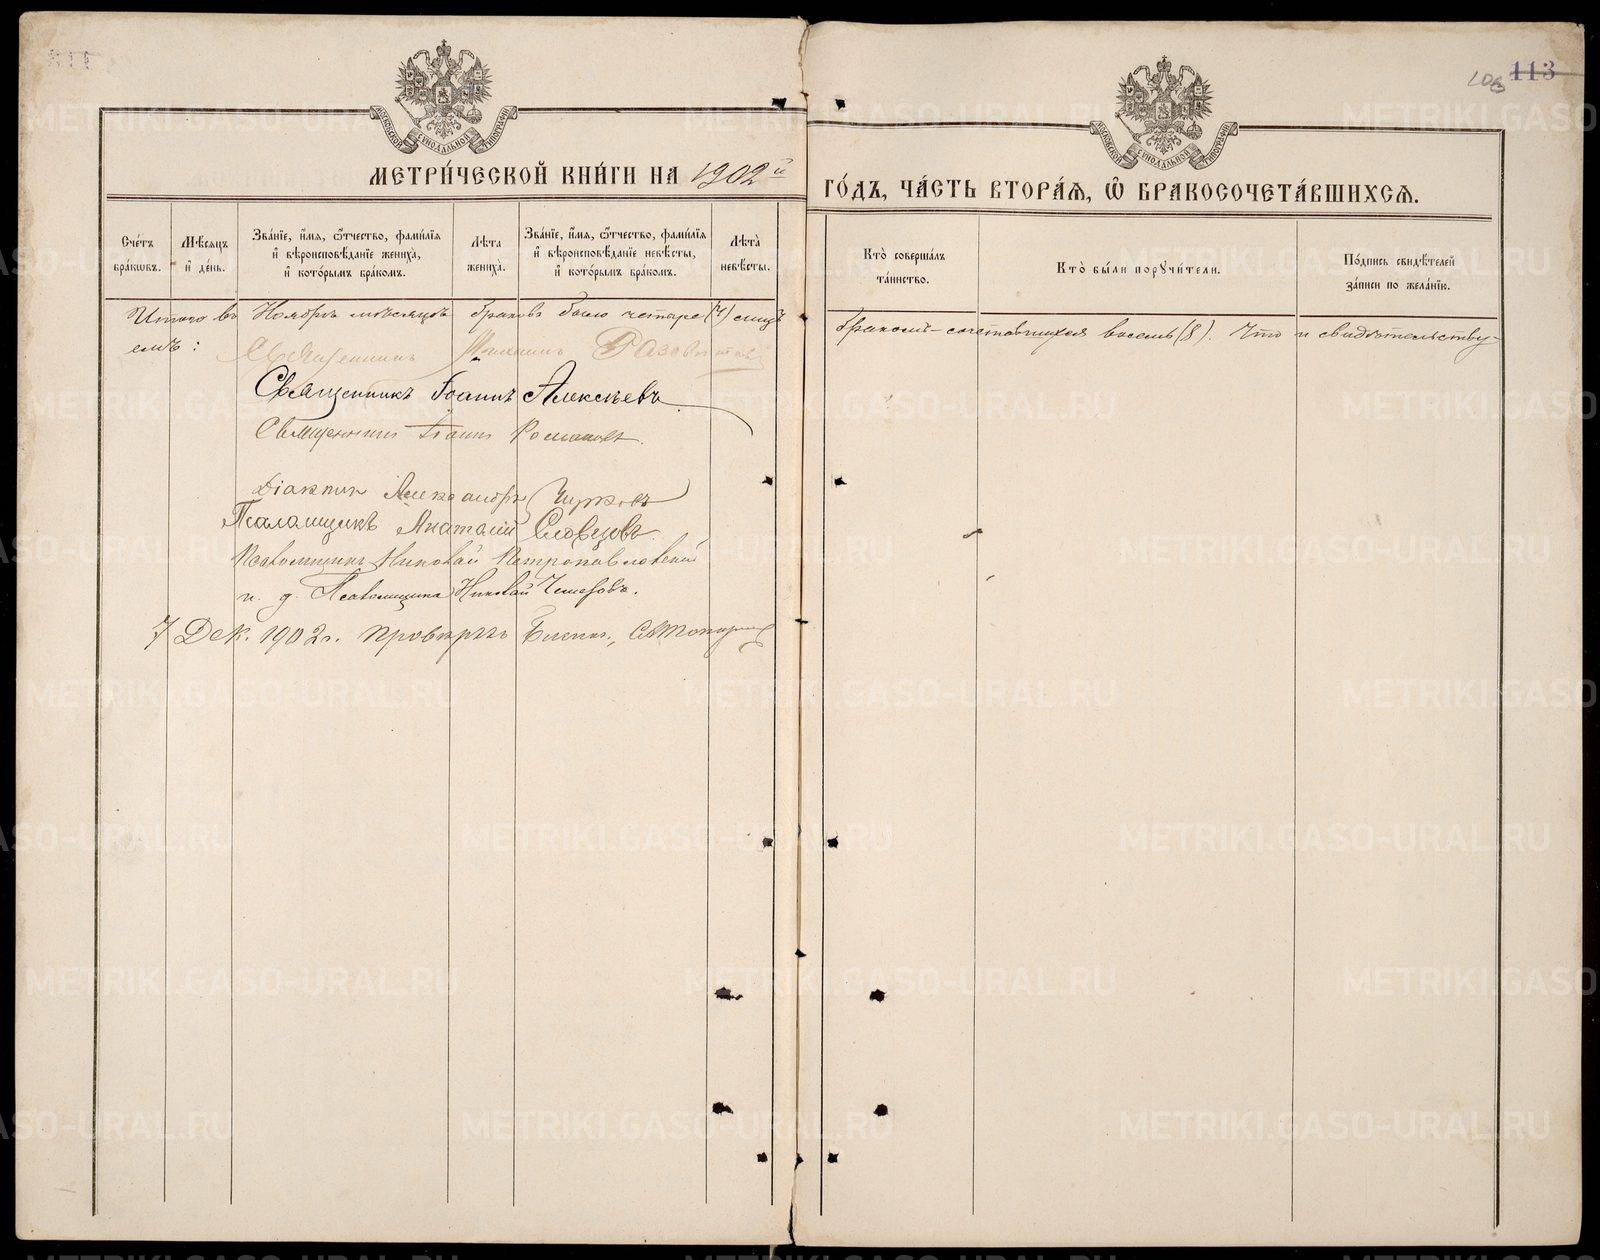 113
МОСКОВСКОЙ СѴНОДАЛЬНОЙ ТИПОГРАФІИ
МОСКОВСКОЙ СѴНОДАЛЬНОЙ ТИПОГРАФІИ
МЕТРИ́ЧЕСКОЙ КНИ́ГИ НА 1902й ГО́ДЪ, ЧА́СТЬ ВТОРА́Ѧ, Ѽ БРАКОСОЧЕТА́ВШИХСѦ.
Сче́тъ бра́кѡвъ.
Мѣ́сѧцъ и҆ де́нь.
Зва́нїе, и҆́мѧ, ѻ҆́тчество, фами́лїѧ и҆ вѣроисповѣ́данїе жениха̀, и҆ кото́рымъ бра́комъ.
Лѣ́та жениха̀.
Зва́нїе, и҆́мѧ, ѻ҆́тчество, фами́лїѧ и҆ вѣроисповѣ́данїе невѣ́сты, и҆ кото́рымъ бра́комъ.
Лѣ́та невѣ́сты.
Кто̀ соверша́лъ та́инство.
Кто̀ бы́ли порꙋчи́тели.
По́дпись свидѣ́телей за́писи по жела́нїю.
Итого въ Ноябрѣ мѣсяцѣ браковъ было четыре (4) лицъ бракомъ-сочетавшихся восемь (8). Что и свидѣтельству-
емъ:
Священникъ Михаилъ
Священникъ Іоаннъ Алексѣевъ
Священникъ Іоаннъ Романовъ.
Діаконъ Александръ Чирковъ
Псаломщикъ Анатолій Словцовъ
Псаломщикъ Николай Петропавловский
и. д. Псаломщика Николай
7 Дек. 1902 г. провѣрялъ Благоч.,
METRIKI.GASO-URAL.RU